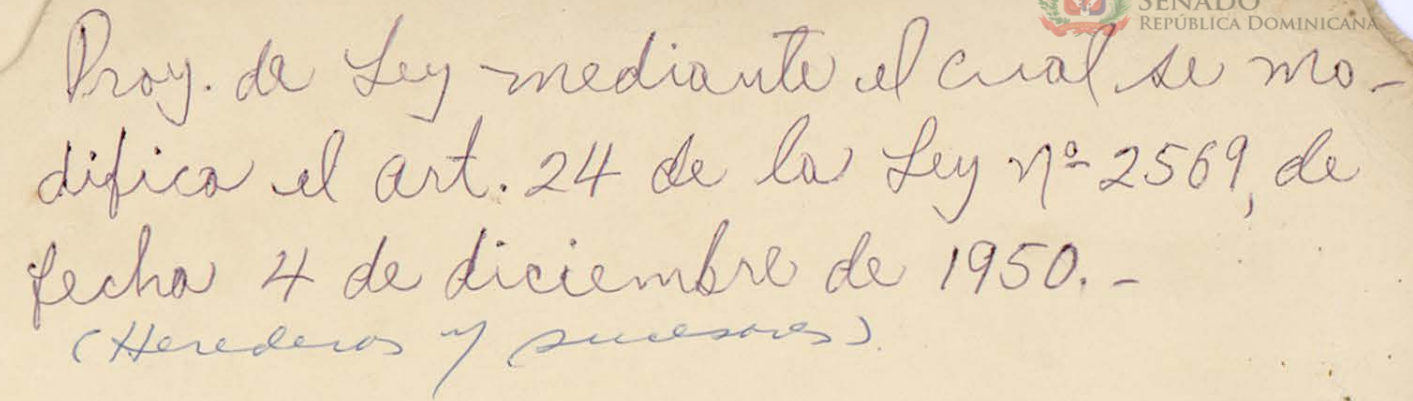 SENADO
REPÚBLICA DOMINICANA
Proy. de Ley mediante el cual se mo-
difica el art. 24 de la Ley Nº 2569, de
fecha 4 de diciembre de 1950.-
(Herederos y sucesores).